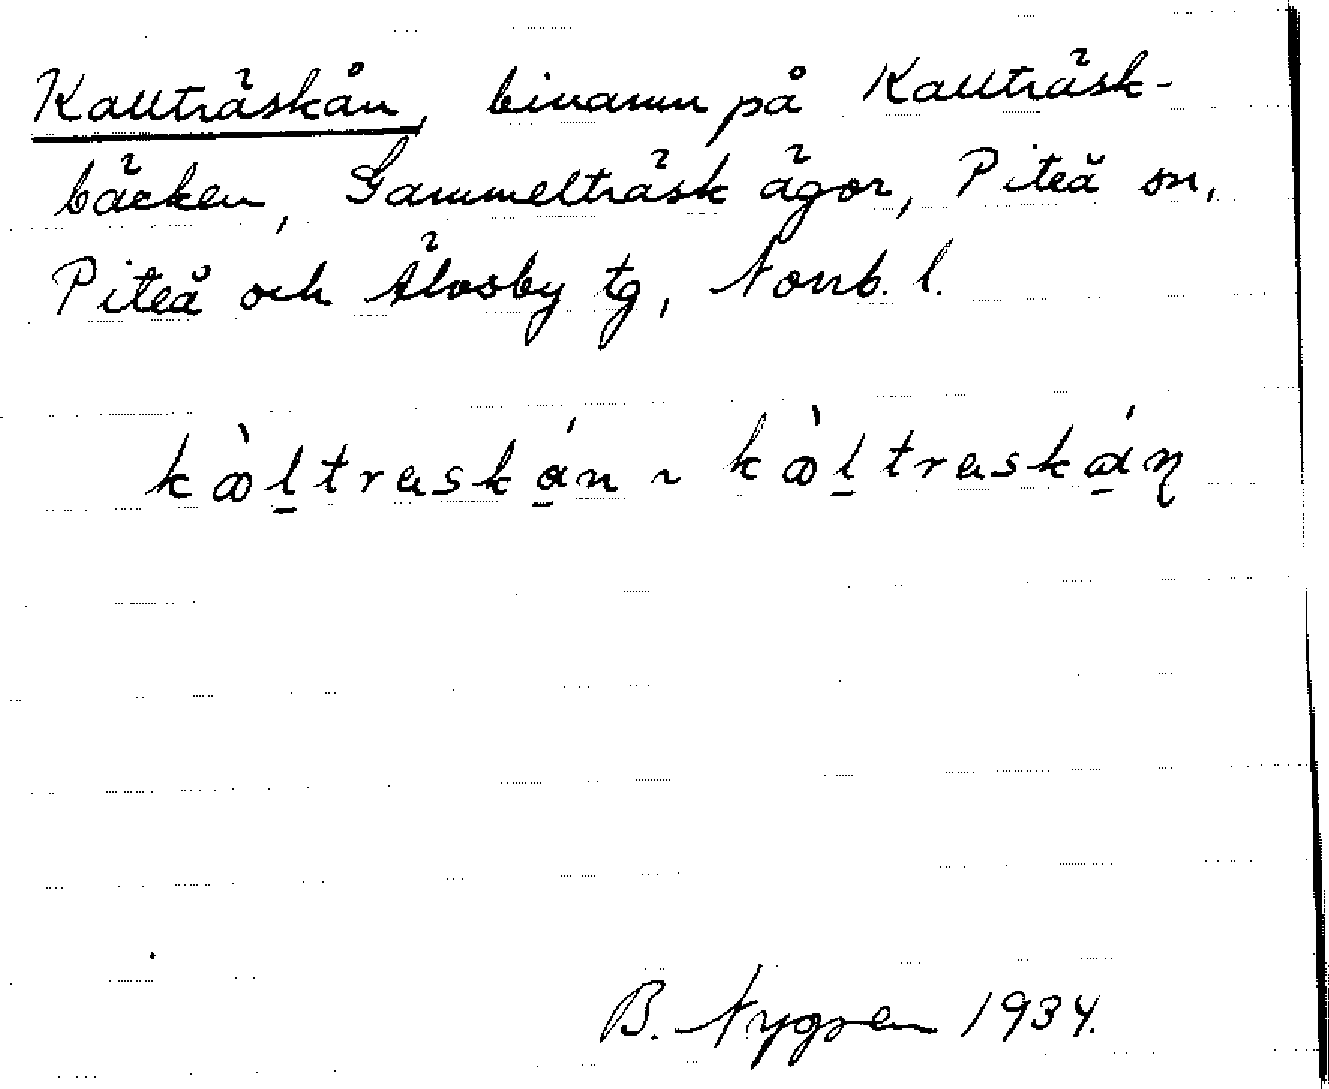 Kallträskån, binamn på Kallträsk-
bäcken, Gammelträsk ägor, Piteå sn,
Piteå och Älvsby tg, Norrb. l.
kæ̀l̠traskɑ̠́n ~ kæ̀l̠traskɑ̠́ŋ
B. Nygren 1934.